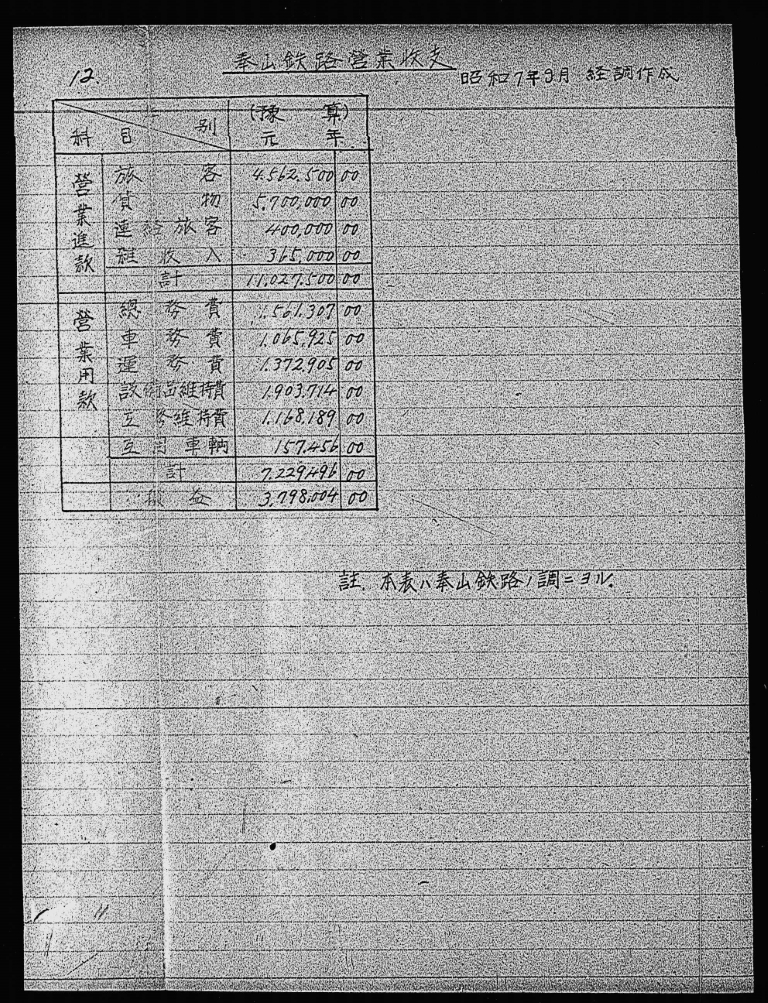 12.
奉山鉄路營業收支
昭和7年9月 経調作成
科目 別 (豫算) 元年
營業進款
旅客 4.562.500 00
貨物 5.700,000 00
連絡旅客 400,000 00
雑收入 365,000 00
計 11.027.500 00
營業用款
總務費 1.561.307 00
車務費 1.065.925 00
運務費 1.372.905 00
設備品維持費 1.903.714 00
工務維持費 1.168.189 00
互用車輌 157.456 00
計 7.229.496 00
益 3.798.004 00
註. 本表ハ奉山鉄路ノ調ニヨル.